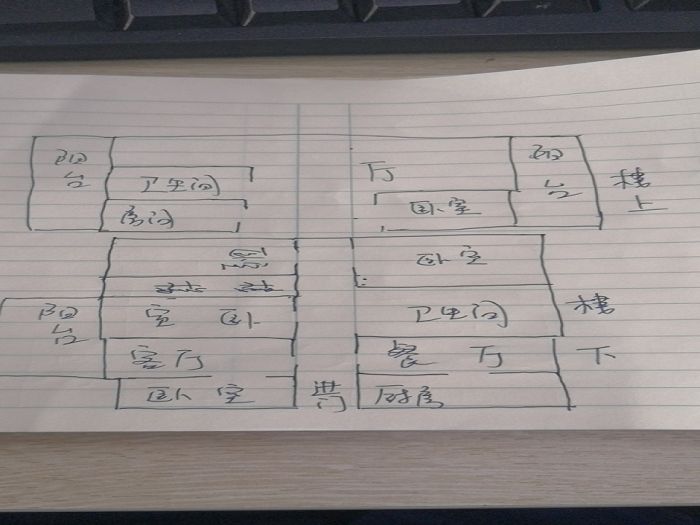 阳台
厅
阳台
卫生间
房间
卧室
楼上
卧室
阳台
室 卧
卫生间
楼下
客厅
餐 厅
卧 室
进门
厨房